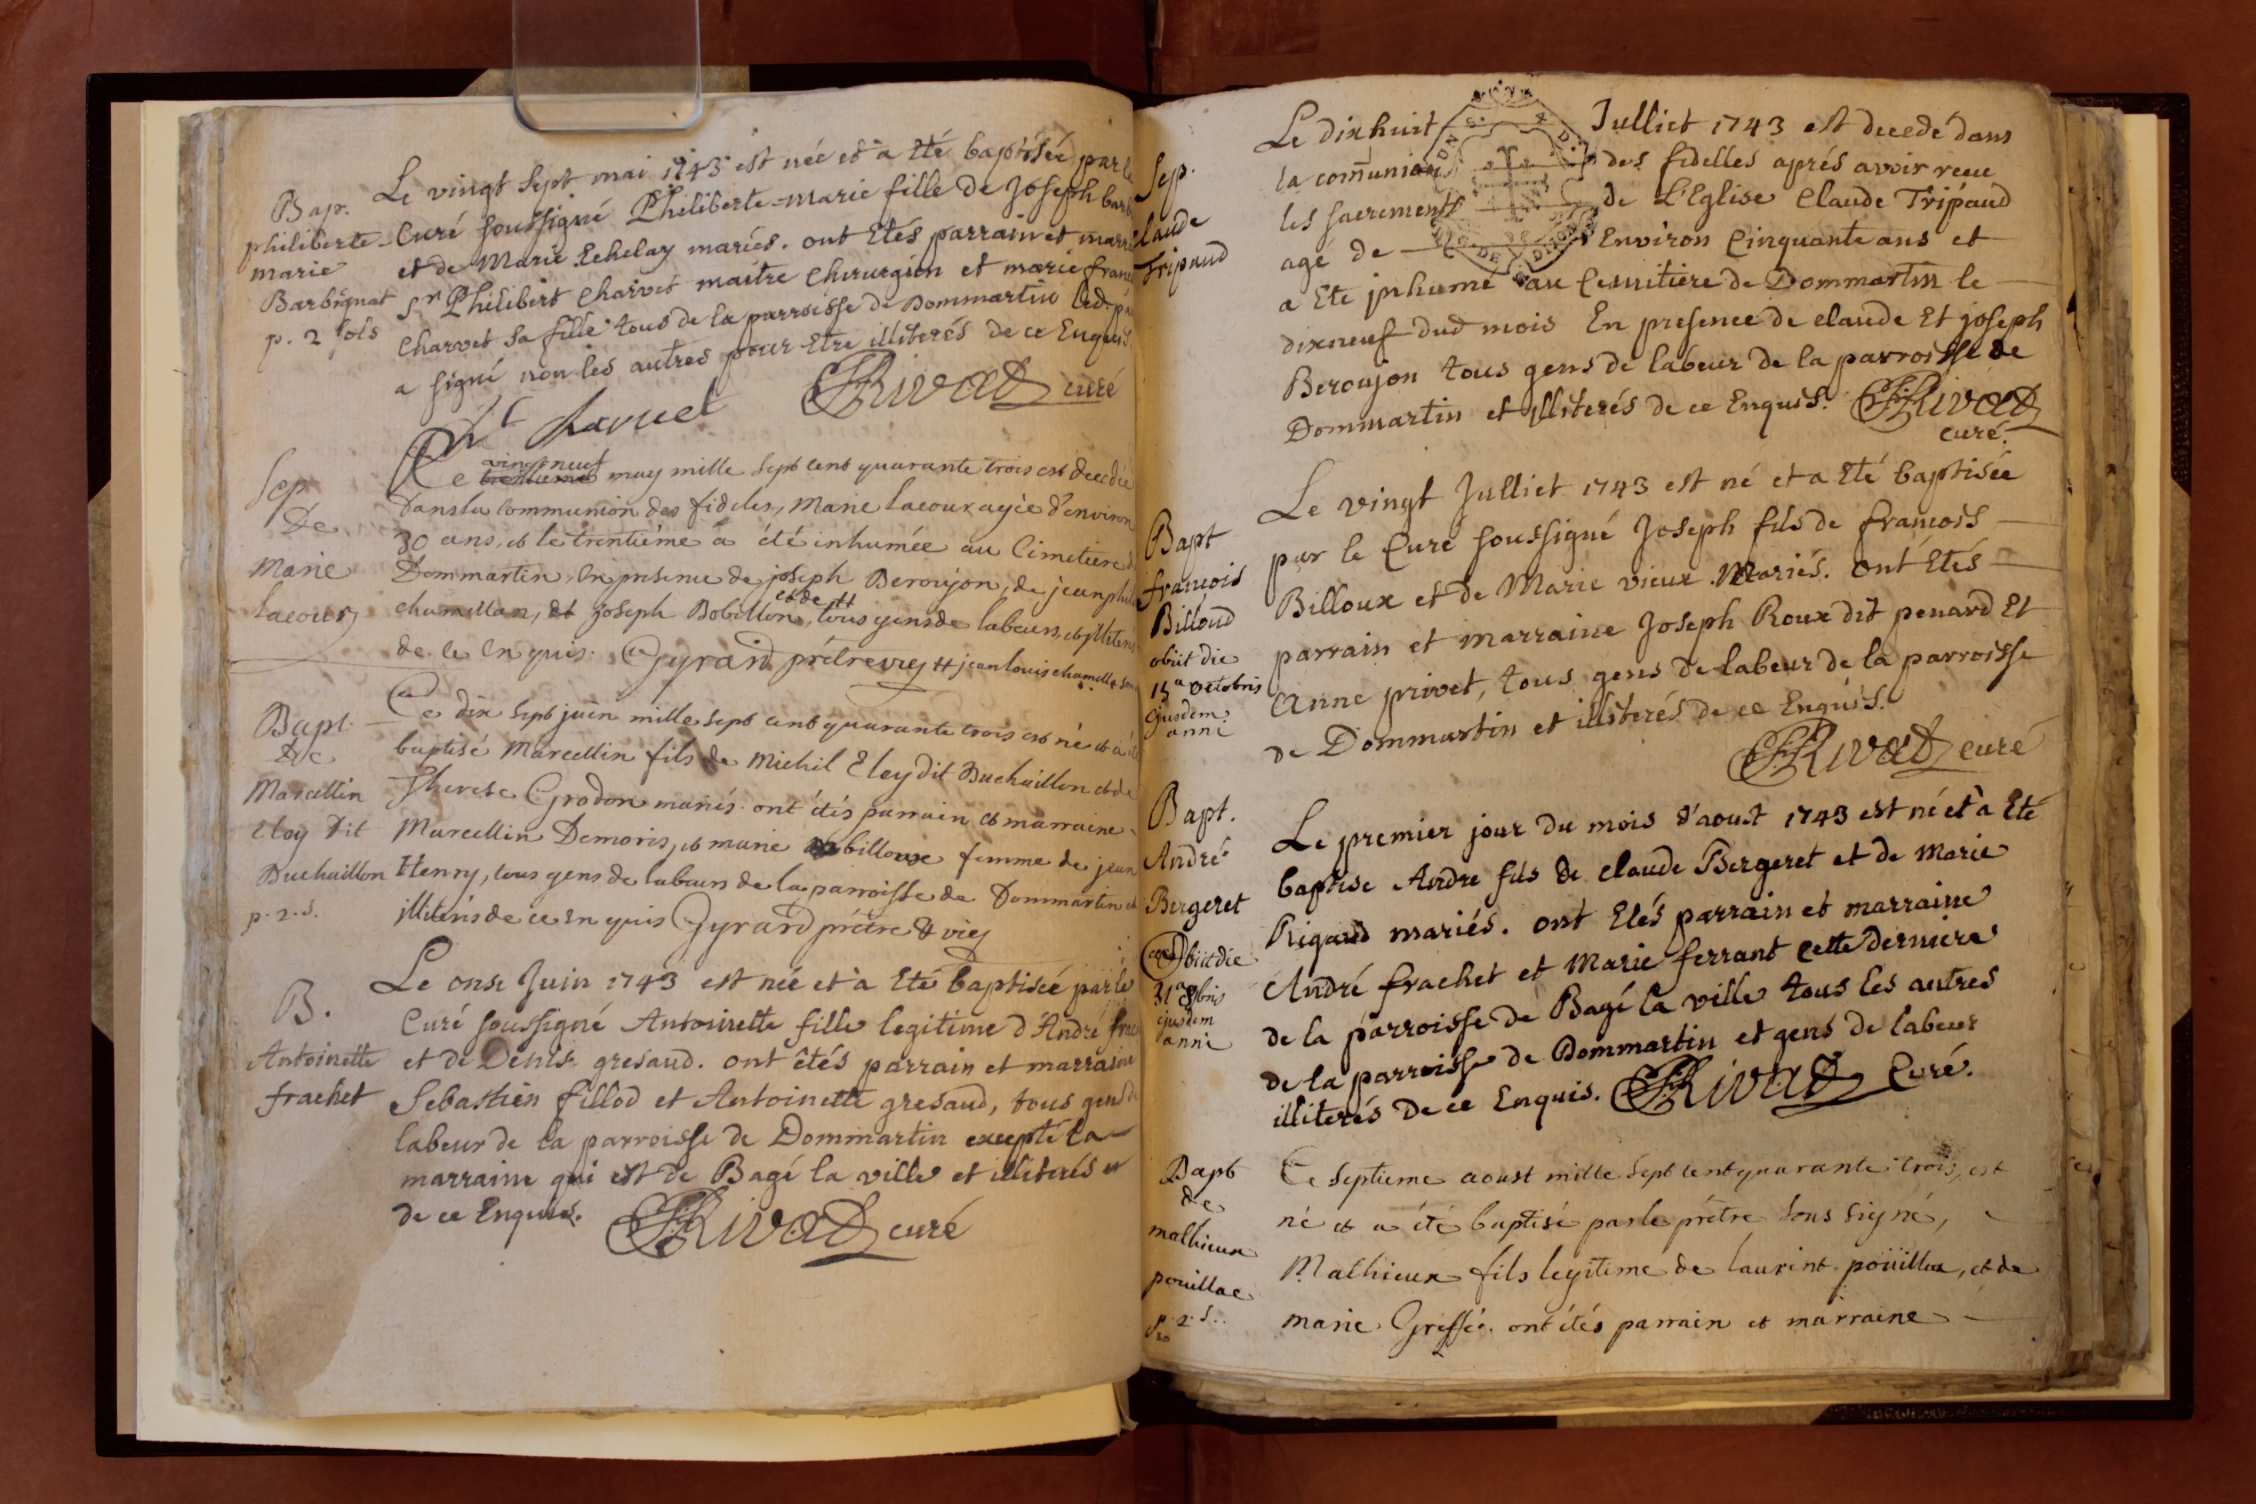 Bap.
philiberte
marie
Barbignat
p. 2 sols
Le vingt sept mai 1743 est née et a Eté baptisée par le
Curé soussigné Philiberte-marie fille de Joseph barb
et de Marie Echelay mariés. ont Etés parrain et marr
Sr Philibert Charvet maitre Chirurgien et marie fran
Charvet sa fille tous de la parroisse de Dommartin led. pa
a signé non les autres pour Etre illiterés de ce Enquis.
Pht Charvet Rivat curé
Sep
De
Marie
lacour
Le vingt neuf trentieme may mille sept cent quarante trois est decedée
Dans la Communion des fideles, Marie lacour agée d'environ
30 ans, et le trentiéme a été inhumée au Cimetiere d
Dommartin, En presence de joseph Beroujon, de jean phili
chamellan, et de joseph Bobillon, tous gens de labeurs, et illiter
de ce Enquis. Gyrard prêtre vic
Bapt
De
Marcellin
Eloy dit
Duchaillon
p. 2. s.
Le dix sept juin mille sept cent quarante trois est né et a été
baptisé Marcellin fils de Michel Eloy dit Duchaillon et de
Therese Grodon mariés. ont étés parrain et marraine
Marcellin Demoris, et marie billoux femme de jean
Henry, tous gens de labeurs de la parroisse de Dommartin et
illiterés de ce Enquis Gyrard prêtre & vic
B.
Antoinette
frachet
Le onse Juin 1743 est née et a Eté baptisée par le
Curé soussigné Antoinette fille legitime d'André frac
et de Denise gresaud. ont êtés parrain et marraine
Sebastien fillod et Antoinette gresaud, tous gens de
labeur de la parroisse de Dommartin excepté la
marraine qui est de Bagé la ville et illiterés
de ce Enquis. Rivat curé
Sep.
laude
Tripaud
Le dix huit Julliet 1743 est decedé dans
la communion des fidelles aprés avoir receu
les sacrements de L'Eglise Claude Tripaud
agé de Environ Cinquante ans et
a Ete jnhumé au Cemitiere de Dommartin le
dixneuf dud mois En presence de claude Et joseph
Beroujon tous gens de labeur de la parroisse de
Dommartin et illiterés de ce Enquis. Rivat
curé.
Bapt
francois
Billoud
obiit die
15a octobris
ejusdem
anni
Le vingt Julliet 1743 est né et a Eté baptisée
par le Curé soussigné Joseph fils de francois
Billoux et de Marie vieux Mariés. ont Etés
parrain et marraine Joseph Roux dit penard Et
Anne privet, tous gens de labeur de la parroisse
de Dommartin et illiterés de ce Enquis.
Rivat curé
Bapt.
André
Bergeret
obiit die
31a 8bris
ejusdem
anni
Le premier jour du mois d'aoust 1743 est né et a Eté
baptise Andre fils de claude Bergeret et de Marie
Rigaud mariés. ont Etés parrain et marraine
André frachet et Marie ferrant cette derniere
de la parroisse de Bagé la ville tous les autres
de la parroisse de Dommartin et gens de labeur
illiterés de ce Enquis. Rivat Curé.
Bapt
de
mathieux
pouillac
p. 2. s.
Le septieme aoust mille sept cent quarante trois, est
né et a été baptisé par le prêtre sous signé,
Mathieux fils legitime de laurent poüillux, et de
marie Greffé. ont étés parrain et marraine